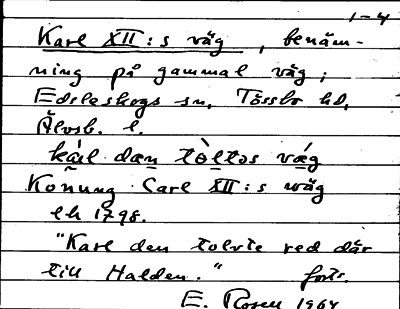 1-4
Karl XII:s väg, benäm-
ning på gammal väg;
Edsleskogs sn, Tössbo hd,
Älvsb. l.
kál dan tòltəs vǽg
Konung Carl XII:s wäg
lh 1798.
"Karl den tolvte red där
till Halden." forts.
E. Rosell 1964